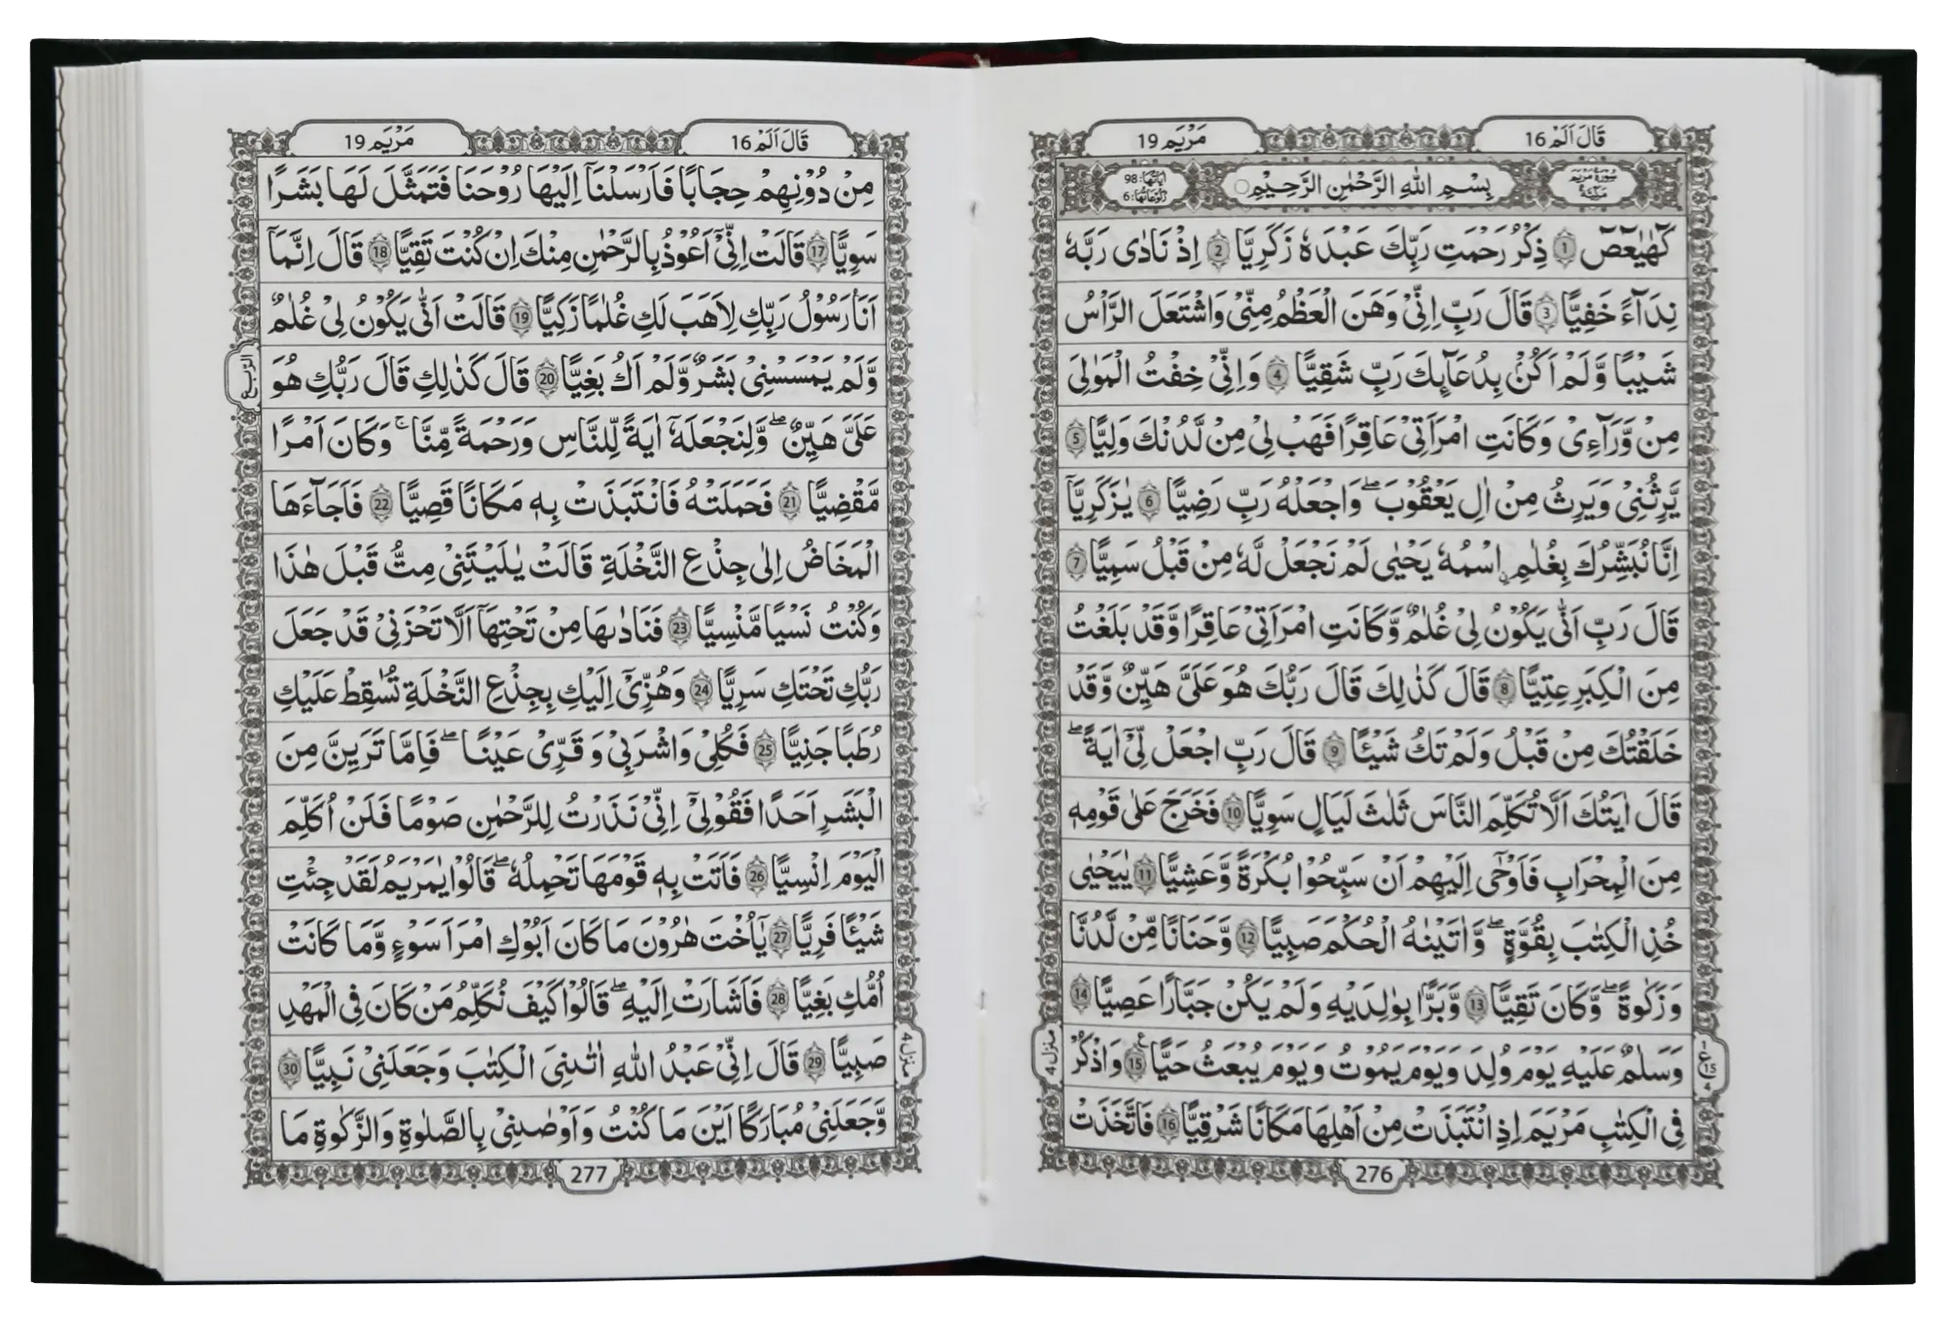 قَالَ اَلَمْ 16
مَرْيَم 19
سُوْرَةُ مَرْيَمَ
مَكِّيَّةٌ
بِسْمِ اللّٰهِ الرَّحْمٰنِ الرَّحِيْمِ
اٰيَاتُهَا: 98
رُكُوْعَاتُهَا: 6
كٓهٰيٰعٓصٓ 1 ذِكْرُ رَحْمَتِ رَبِّكَ عَبْدَهٗ زَكَرِيَّا 2 اِذْ نَادٰى رَبَّهٗ
نِدَآءً خَفِيًّا 3 قَالَ رَبِّ اِنِّىْ وَهَنَ الْعَظْمُ مِنِّىْ وَاشْتَعَلَ الرَّاْسُ
شَيْبًا وَّلَمْ اَكُنْۢ بِدُعَآىِٕكَ رَبِّ شَقِيًّا 4 وَاِنِّىْ خِفْتُ الْمَوَالِىَ
مِنْ وَّرَآءِىْ وَكَانَتِ امْرَاَتِىْ عَاقِرًا فَهَبْ لِىْ مِنْ لَّدُنْكَ وَلِيًّا 5
يَّرِثُنِىْ وَيَرِثُ مِنْ اٰلِ يَعْقُوْبَ ۖ وَاجْعَلْهُ رَبِّ رَضِيًّا 6 يٰزَكَرِيَّآ
اِنَّا نُبَشِّرُكَ بِغُلٰمِ ۨاسْمُهٗ يَحْيٰى لَمْ نَجْعَلْ لَّهٗ مِنْ قَبْلُ سَمِيًّا 7
قَالَ رَبِّ اَنّٰى يَكُوْنُ لِىْ غُلٰمٌ وَّكَانَتِ امْرَاَتِىْ عَاقِرًا وَّقَدْ بَلَغْتُ
مِنَ الْكِبَرِ عِتِيًّا 8 قَالَ كَذٰلِكَ قَالَ رَبُّكَ هُوَ عَلَىَّ هَيِّنٌ وَّقَدْ
خَلَقْتُكَ مِنْ قَبْلُ وَلَمْ تَكُ شَيْـًٔا 9 قَالَ رَبِّ اجْعَلْ لِّىْۤ اٰيَةً ۖ
قَالَ اٰيَتُكَ اَلَّا تُكَلِّمَ النَّاسَ ثَلٰثَ لَيَالٍ سَوِيًّا 10 فَخَرَجَ عَلٰى قَوْمِهٖ
مِنَ الْمِحْرَابِ فَاَوْحٰۤى اِلَيْهِمْ اَنْ سَبِّحُوْا بُكْرَةً وَّعَشِيًّا 11 يٰيَحْيٰى
خُذِ الْكِتٰبَ بِقُوَّةٍ ۖ وَّاٰتَيْنٰهُ الْحُكْمَ صَبِيًّا 12 وَّحَنَانًا مِّنْ لَّدُنَّا
وَزَكٰوةً ۖ وَّكَانَ تَقِيًّا 13 وَّبَرًّا بِوٰلِدَيْهِ وَلَمْ يَكُنْ جَبَّارًا عَصِيًّا 14
وَسَلٰمٌ عَلَيْهِ يَوْمَ وُلِدَ وَيَوْمَ يَمُوْتُ وَيَوْمَ يُبْعَثُ حَيًّا 15 وَاذْكُرْ
فِى الْكِتٰبِ مَرْيَمَ اِذِ انْتَبَذَتْ مِنْ اَهْلِهَا مَكَانًا شَرْقِيًّا 16 فَاتَّخَذَتْ
منزل 4
276
قَالَ اَلَمْ 16
مَرْيَم 19
مِنْ دُوْنِهِمْ حِجَابًا فَاَرْسَلْنَاۤ اِلَيْهَا رُوْحَنَا فَتَمَثَّلَ لَهَا بَشَرًا
سَوِيًّا 17 قَالَتْ اِنِّىْۤ اَعُوْذُ بِالرَّحْمٰنِ مِنْكَ اِنْ كُنْتَ تَقِيًّا 18 قَالَ اِنَّمَاۤ
اَنَا رَسُوْلُ رَبِّكِ لِاَهَبَ لَكِ غُلٰمًا زَكِيًّا 19 قَالَتْ اَنّٰى يَكُوْنُ لِىْ غُلٰمٌ
وَّلَمْ يَمْسَسْنِىْ بَشَرٌ وَّلَمْ اَكُ بَغِيًّا 20 قَالَ كَذٰلِكِ قَالَ رَبُّكِ هُوَ
عَلَىَّ هَيِّنٌ ۖ وَّلِنَجْعَلَهٗۤ اٰيَةً لِّلنَّاسِ وَرَحْمَةً مِّنَّا ۚ وَكَانَ اَمْرًا
مَّقْضِيًّا 21 فَحَمَلَتْهُ فَانْتَبَذَتْ بِهٖ مَكَانًا قَصِيًّا 22 فَاَجَآءَهَا
الْمَخَاضُ اِلٰى جِذْعِ النَّخْلَةِ قَالَتْ يٰلَيْتَنِىْ مِتُّ قَبْلَ هٰذَا
وَكُنْتُ نَسْيًا مَّنْسِيًّا 23 فَنَادٰىهَا مِنْ تَحْتِهَاۤ اَلَّا تَحْزَنِىْ قَدْ جَعَلَ
رَبُّكِ تَحْتَكِ سَرِيًّا 24 وَهُزِّىْۤ اِلَيْكِ بِجِذْعِ النَّخْلَةِ تُسٰقِطْ عَلَيْكِ
رُطَبًا جَنِيًّا 25 فَكُلِىْ وَاشْرَبِىْ وَقَرِّىْ عَيْنًا ۖ فَاِمَّا تَرَيِنَّ مِنَ
الْبَشَرِ اَحَدًا فَقُوْلِىْۤ اِنِّىْ نَذَرْتُ لِلرَّحْمٰنِ صَوْمًا فَلَنْ اُكَلِّمَ
الْيَوْمَ اِنْسِيًّا 26 فَاَتَتْ بِهٖ قَوْمَهَا تَحْمِلُهٗ ۖ قَالُوْا يٰمَرْيَمُ لَقَدْ جِئْتِ
شَيْـًٔا فَرِيًّا 27 يٰۤاُخْتَ هٰرُوْنَ مَا كَانَ اَبُوْكِ امْرَاَ سَوْءٍ وَّمَا كَانَتْ
اُمُّكِ بَغِيًّا 28 فَاَشَارَتْ اِلَيْهِ ۖ قَالُوْا كَيْفَ نُكَلِّمُ مَنْ كَانَ فِى الْمَهْدِ
صَبِيًّا 29 قَالَ اِنِّىْ عَبْدُ اللّٰهِ اٰتٰنِىَ الْكِتٰبَ وَجَعَلَنِىْ نَبِيًّا 30
وَّجَعَلَنِىْ مُبَارَكًا اَيْنَ مَا كُنْتُ وَاَوْصٰنِىْ بِالصَّلٰوةِ وَالزَّكٰوةِ مَا
الربع
منزل 4
277